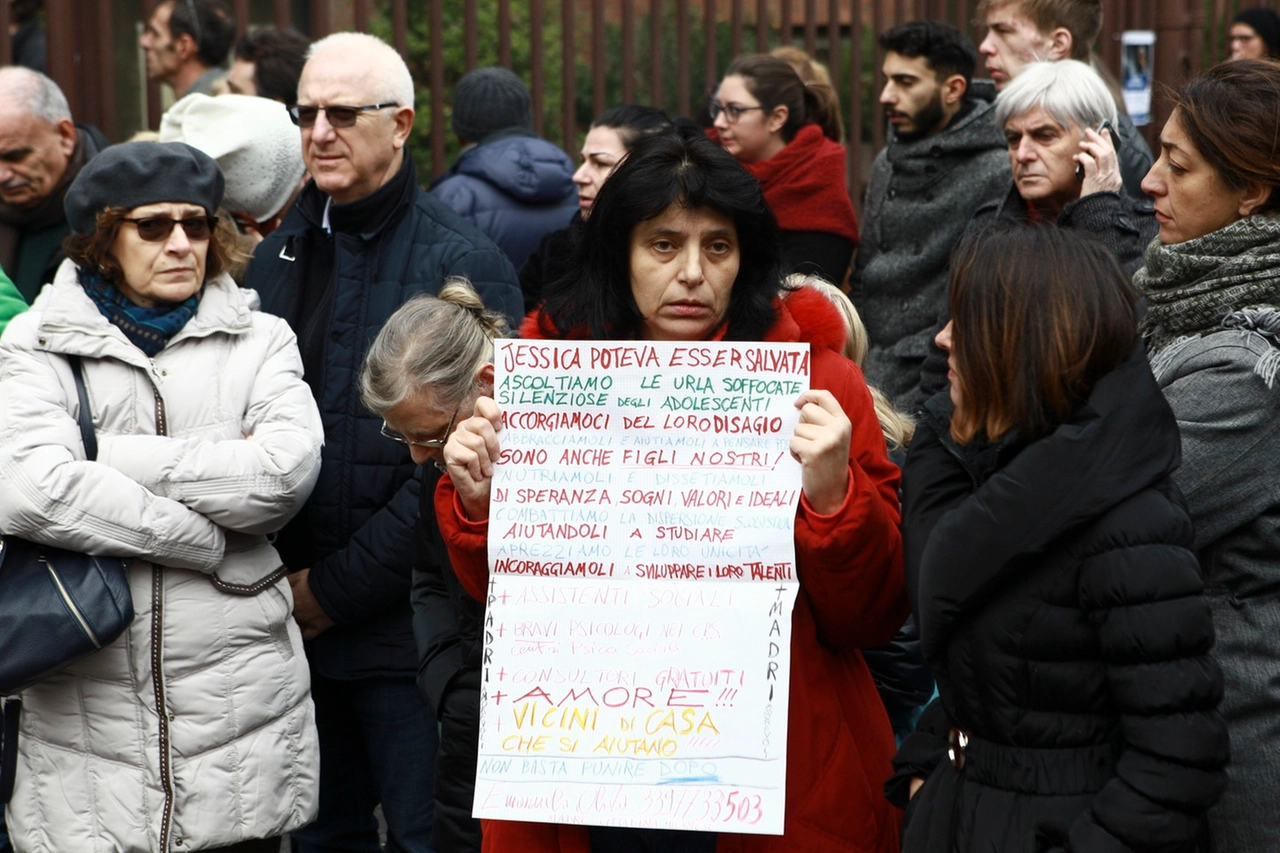 JESSICA POTEVA ESSER SALVATA
ASCOLTIAMO LE URLA SOFFOCATE
SILENZIOSE DEGLI ADOLESCENTI
ACCORGIAMOCI DEL LORO DISAGIO
ABBRACCIAMOLI E AIUTIAMOLI A PENSARE
SONO ANCHE FIGLI NOSTRI!
NUTRIAMOLI E DISSETIAMOLI
DI SPERANZA, SOGNI, VALORI E IDEALI
COMBATTIAMO LA DISPERSIONE SCOLASTICA
AIUTANDOLI A STUDIARE
APREZZIAMO LE LORO UNICITA'
INCORAGGIAMOLI A SVILUPPARE I LORO TALENTI
+ ASSISTENTI SOCIALI
+ BRAVI PSICOLOGI NEI CPS
centri Psico Sociali
+ CONSULTORI GRATUITI
+ AMORE!!!
+ VICINI DI CASA
CHE SI AIUTANO !!!!!
NON BASTA PUNIRE DOPO
+ PADRI
+ MADRI